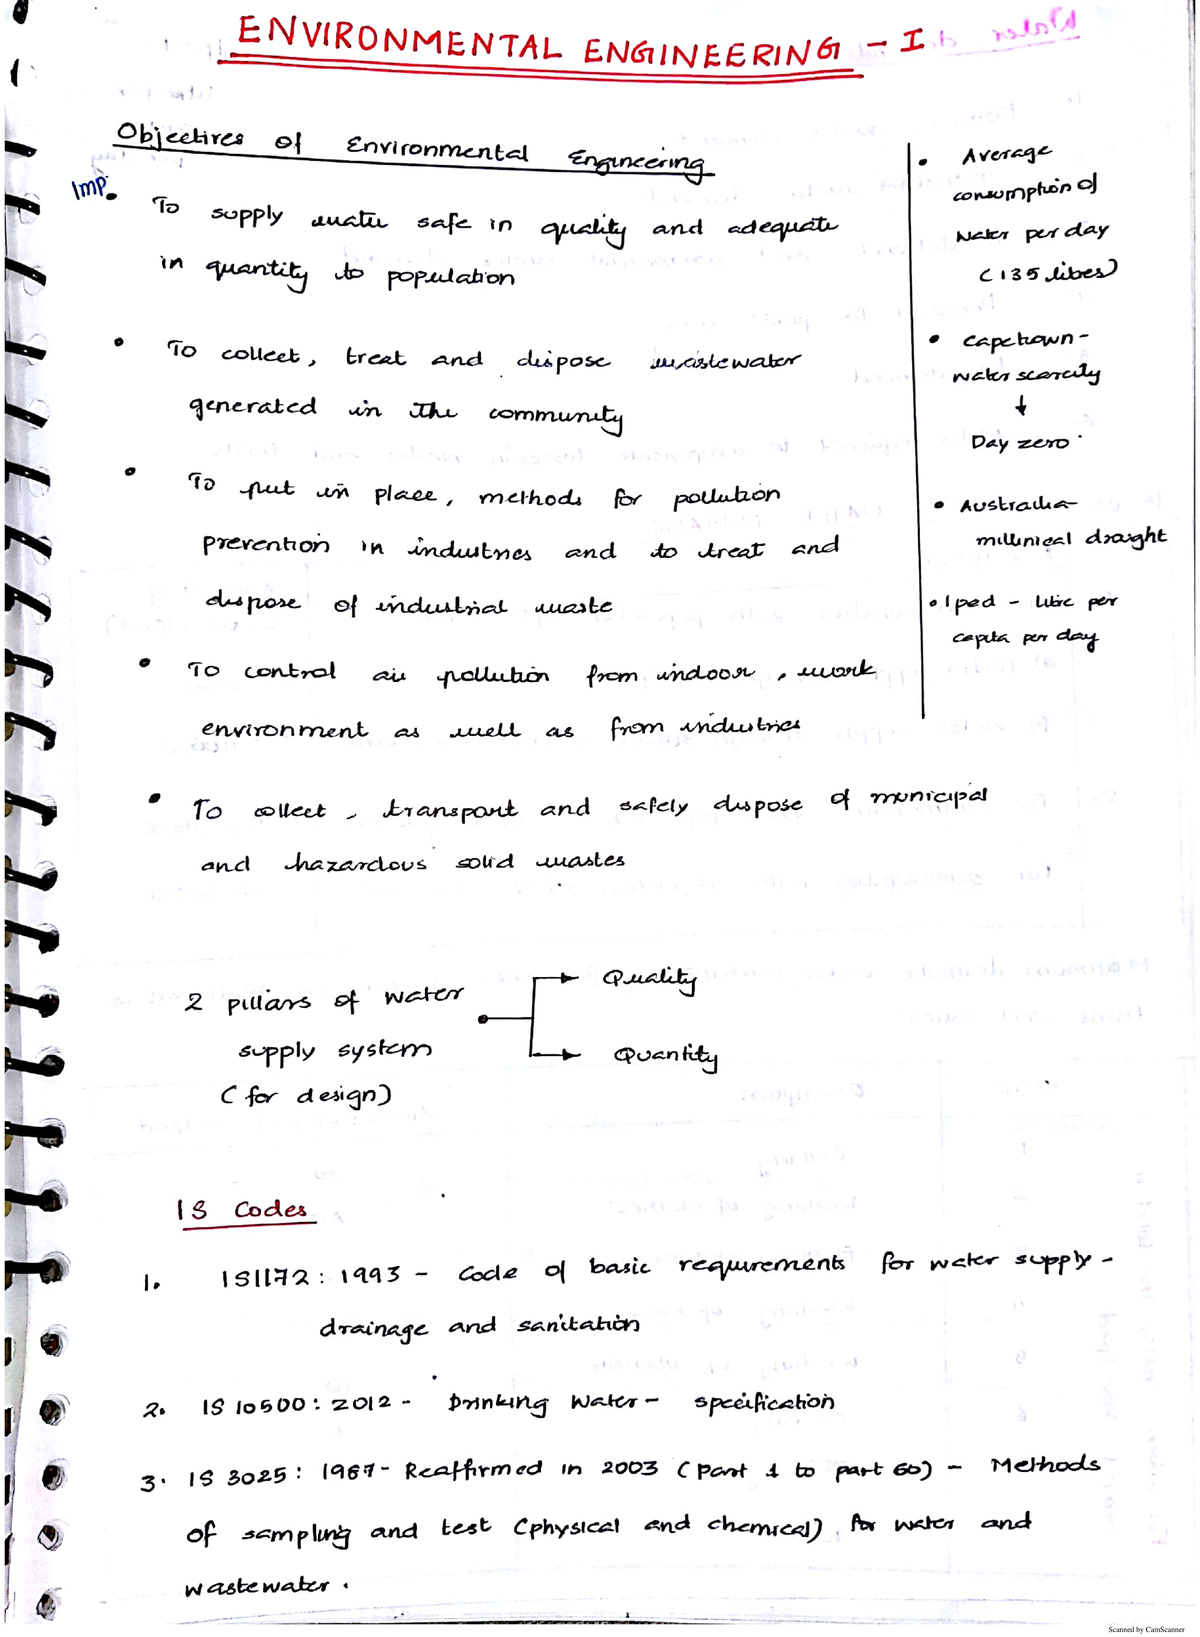 ENVIRONMENTAL ENGINEERING - I
Objectives of Environmental Engineering
Imp.
• To supply water safe in quality and adequate
in quantity to population
• To collect, treat and dispose wastewater
generated in the community
• To put in place, methods for pollution
prevention in industries and to treat and
dispose of industrial waste
• To control air pollution from indoor, work
environment as well as from industries
• To collect, transport and safely dispose of municipal
and hazardous solid wastes
• Average
consumption of
water per day
(135 litres)
• Capetown -
water scarcity
↓
Day zero
• Australia -
millinieal draught
• lpcd - litre per
capita per day
2 pillars of water
supply system
(for design)
Quality
Quantity
IS Codes
1. IS1172: 1993 - Code of basic requirements for water supply -
drainage and sanitation
2. IS 10500: 2012 - Drinking Water - specification
3. IS 3025: 1987 - Reaffirmed in 2003 (Part 1 to part 60) - Methods
of sampling and test (physical and chemical) for water and
wastewater.
Scanned by CamScanner